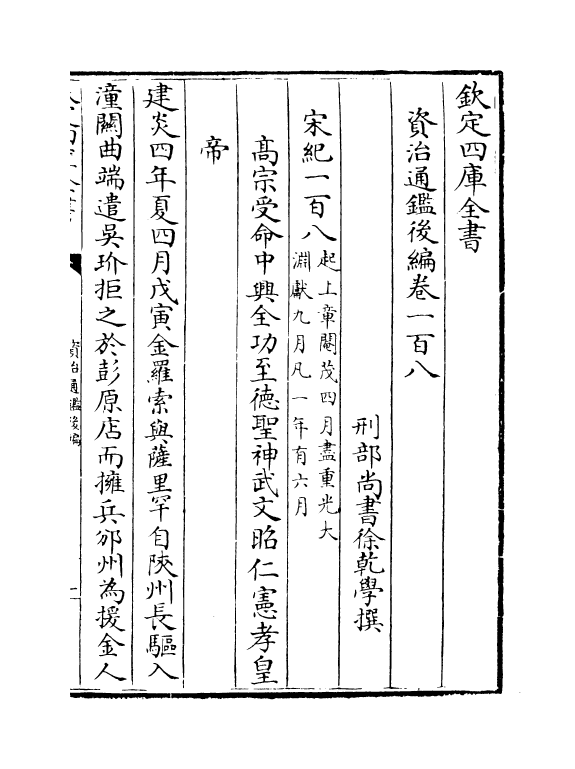 欽定四庫全書
資治通鑑後編卷一百八
刑部尚書徐乾學撰
宋紀一百八起上章閹茂四月盡重光大
淵獻九月凡一年有六月
高宗受命中興全功至德聖神武文昭仁憲孝皇
帝
建炎四年夏四月戊寅金羅索與薩里罕自陝州長驅入
潼關曲端遣吳玠拒之於彭原店而擁兵邠州為援金人
資治通鑑後編
一